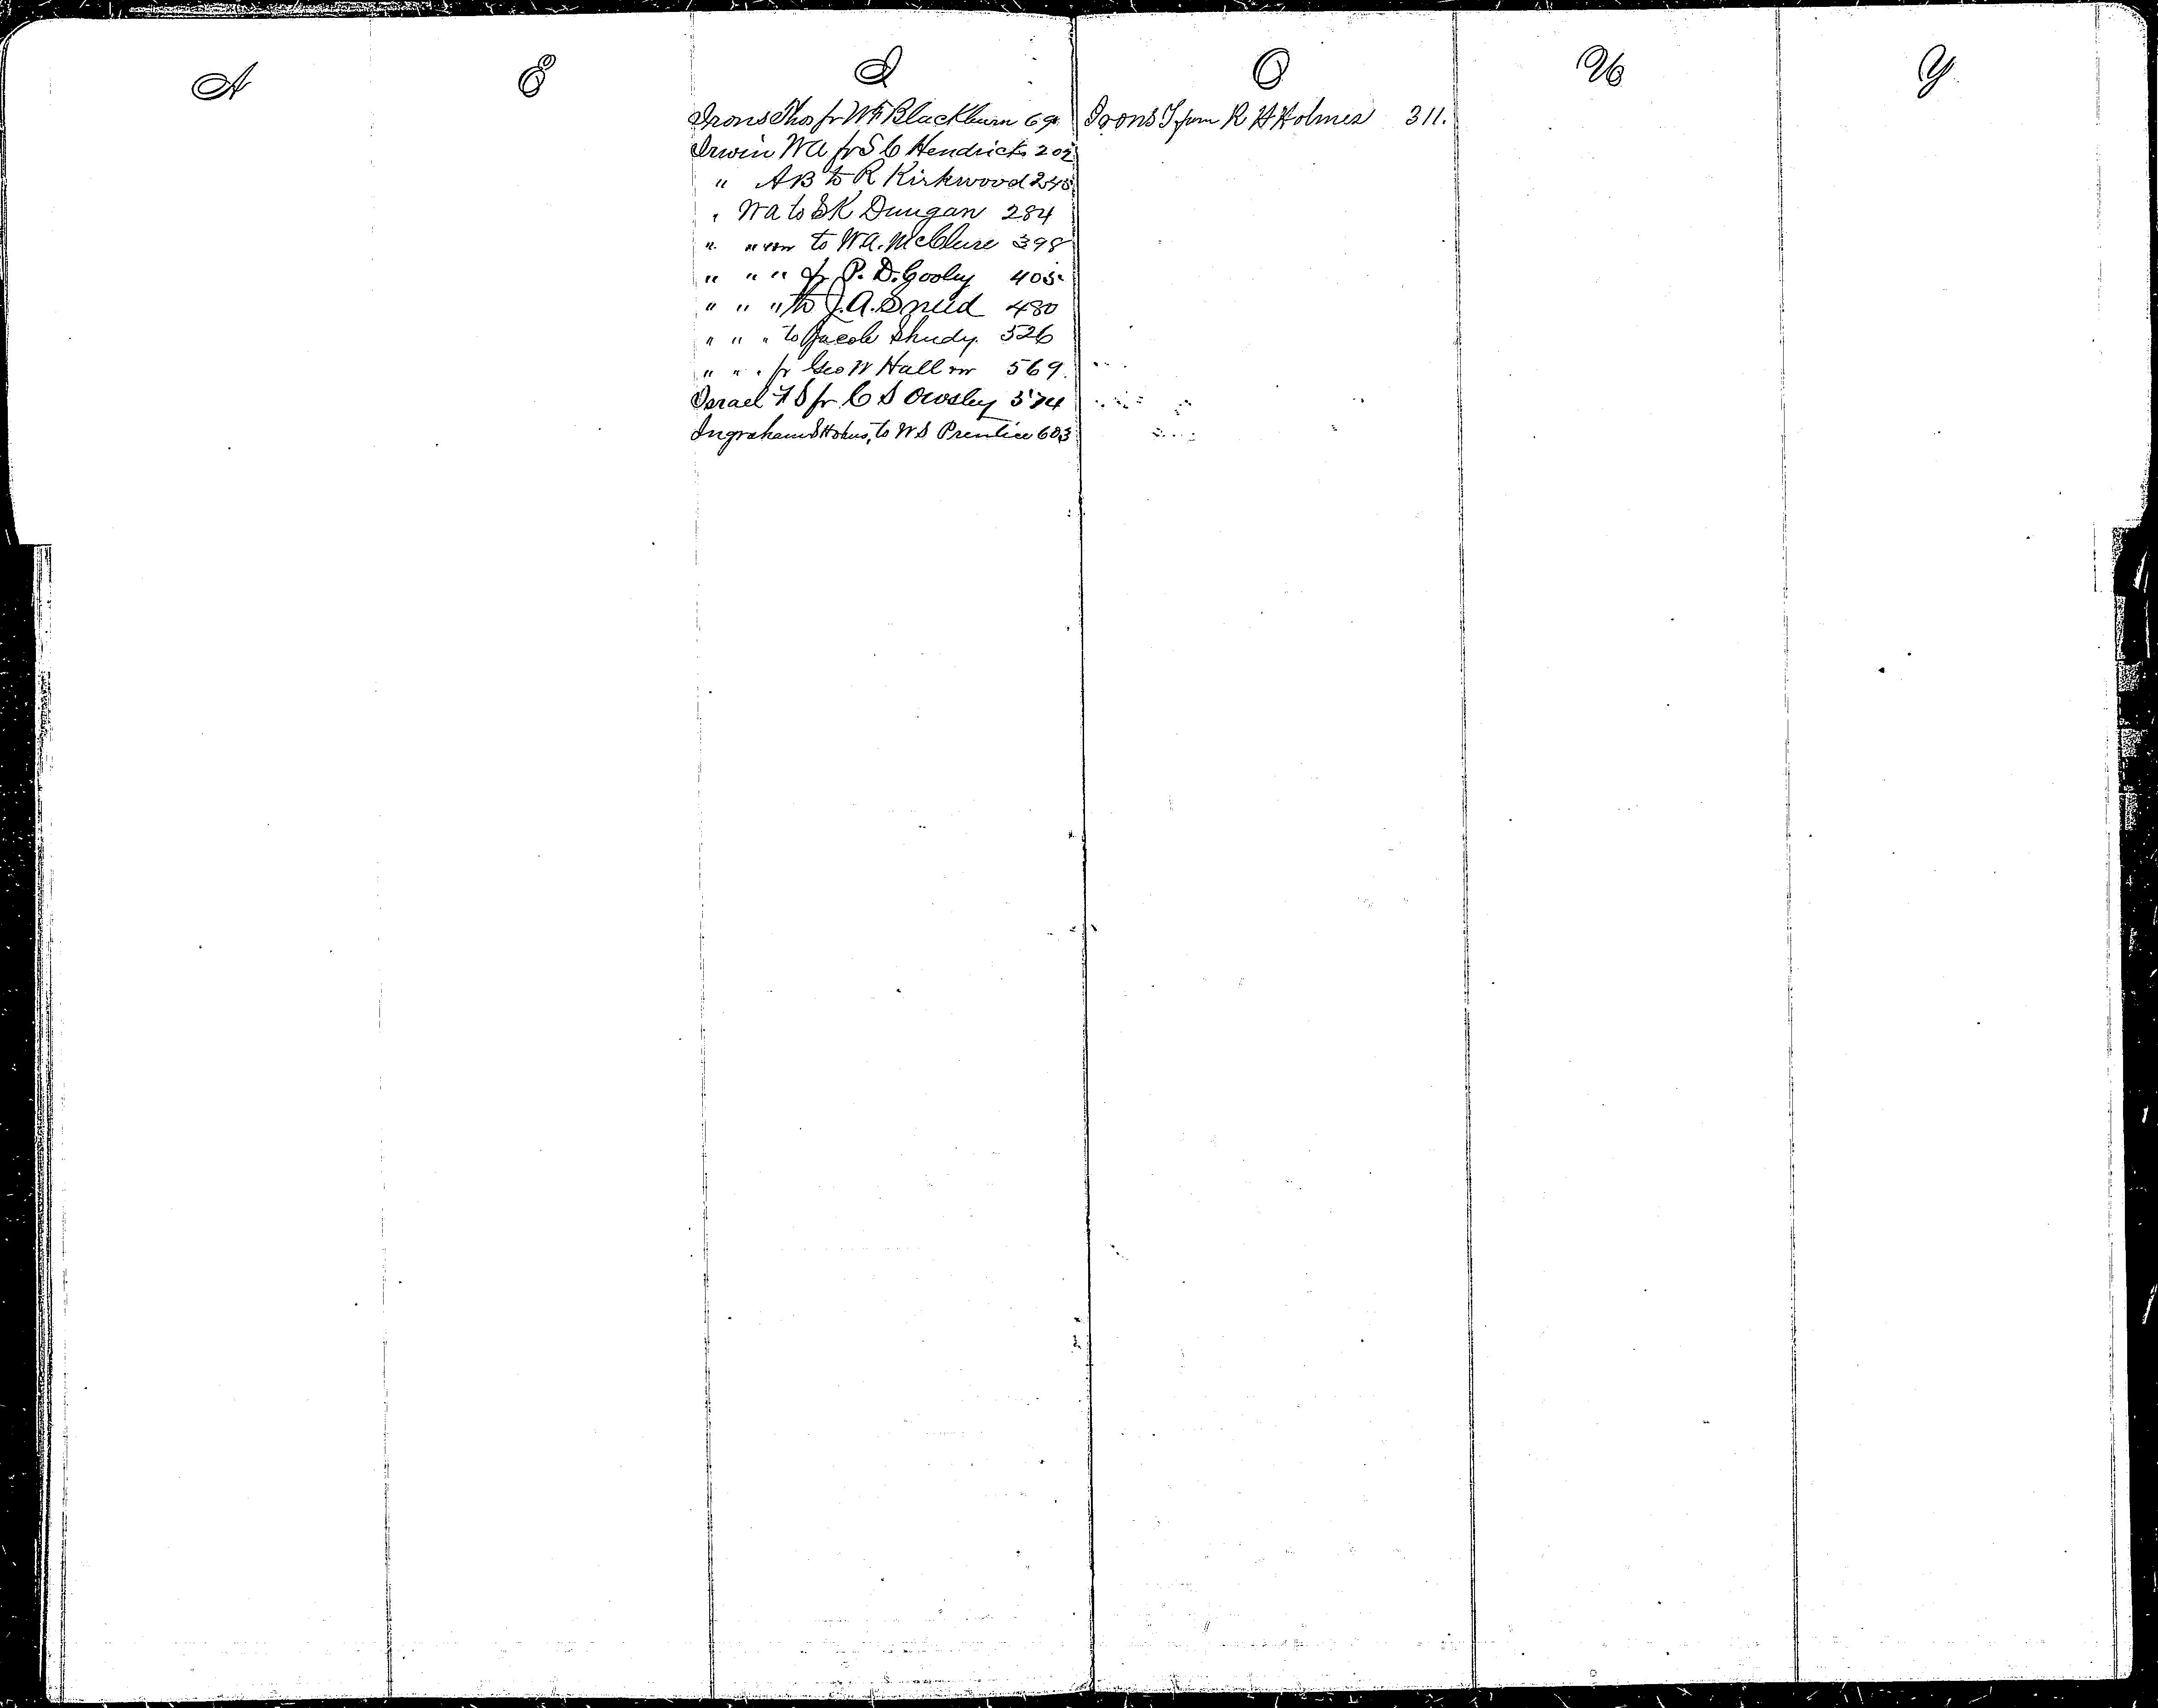 A
E
I
O
U
Y
Irons Thos fr W F Blackburn 69
Irwin W A fr S C Hendricks 202
" A B to R Kirkwood 245
" W A to S K Dungan 284
" " to W A. McClure 398
" " " fr P. D. Gooley 405
" " " to J. A. Sneed 480
" " " to Jacob Shudy. 526
" " " fr Geo W Hall 569.
Israel F S fr C S Owsley 574
Ingraham to W S Prentice 603
Irons T from R H Holmes 311.